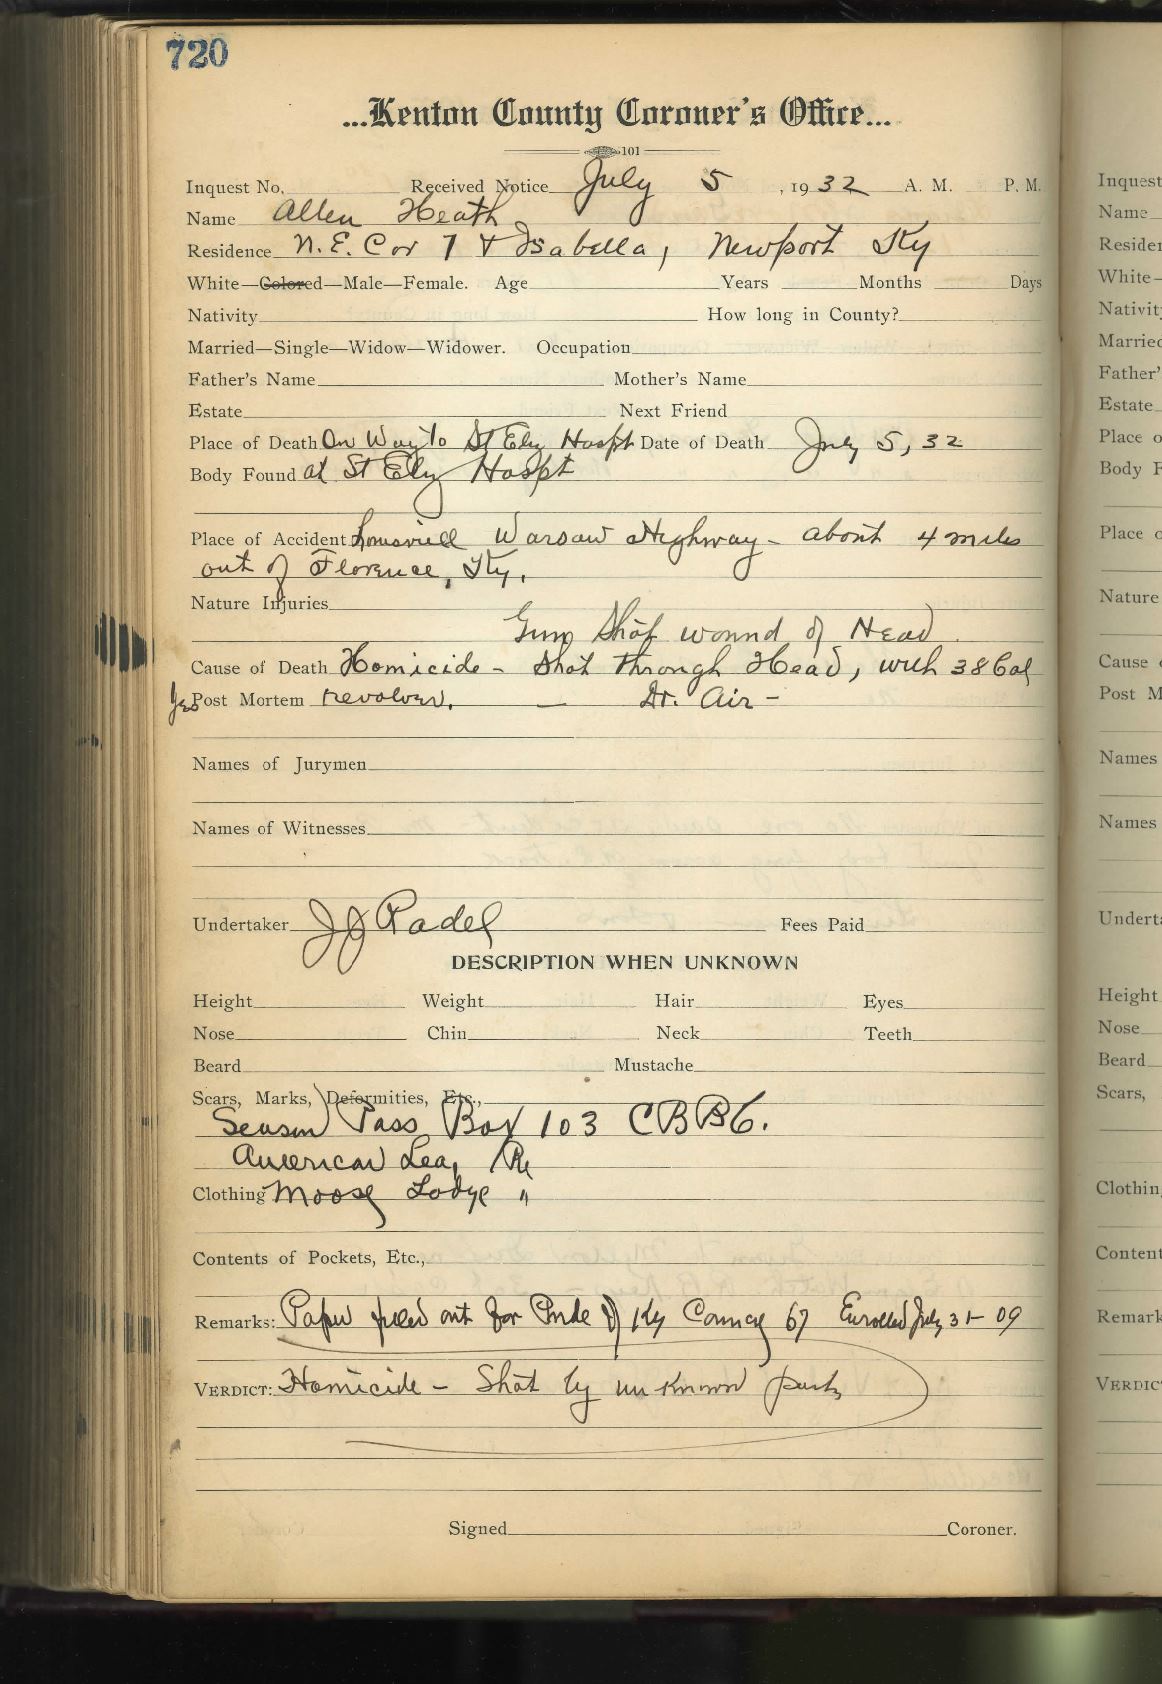 720
...Kenton County Coroner's Office...
101
Inquest No. Received Notice July 5, 1932 A. M. P. M.
Name Allen Heath
Residence N. E. Cor 7 & Isabella, Newport Ky
White—Colored—Male—Female. Age Years Months Days
Nativity How long in County?
Married—Single—Widow—Widower. Occupation
Father's Name Mother's Name
Estate Next Friend
Place of Death On Way to St Eliz Hospt Date of Death July 5, 32
Body Found at St Eliz Hospt
Place of Accident Louisvill Warsaw Highway - about 4 miles
out of Florence, Ky.
Nature Injuries
Gun Shot wound of Head
Cause of Death Homicide - Shot through Head, with 38 Cal
Yes Post Mortem revolver. — Dr. Air -
Names of Jurymen
Names of Witnesses
Undertaker J J Radel Fees Paid
DESCRIPTION WHEN UNKNOWN
Height Weight Hair Eyes
Nose Chin Neck Teeth
Beard Mustache
Scars, Marks, Deformities, Etc.,
Season Pass Box 103 CBBC.
American Lea,
Clothing Moose Lodge "
Contents of Pockets, Etc.,
Remarks: Paper filled out for Pride of Ky Council 67 Enrolled July 31-09
VERDICT: Homicide - Shot by unknown party
Signed Coroner.
Inquest
Name
Resider
White—
Nativity
Married
Father'
Estate
Place o
Body F
Place o
Nature
Cause o
Post M
Names
Names
Underta
Height
Nose
Beard
Scars,
Clothin
Content
Remark
VERDIC